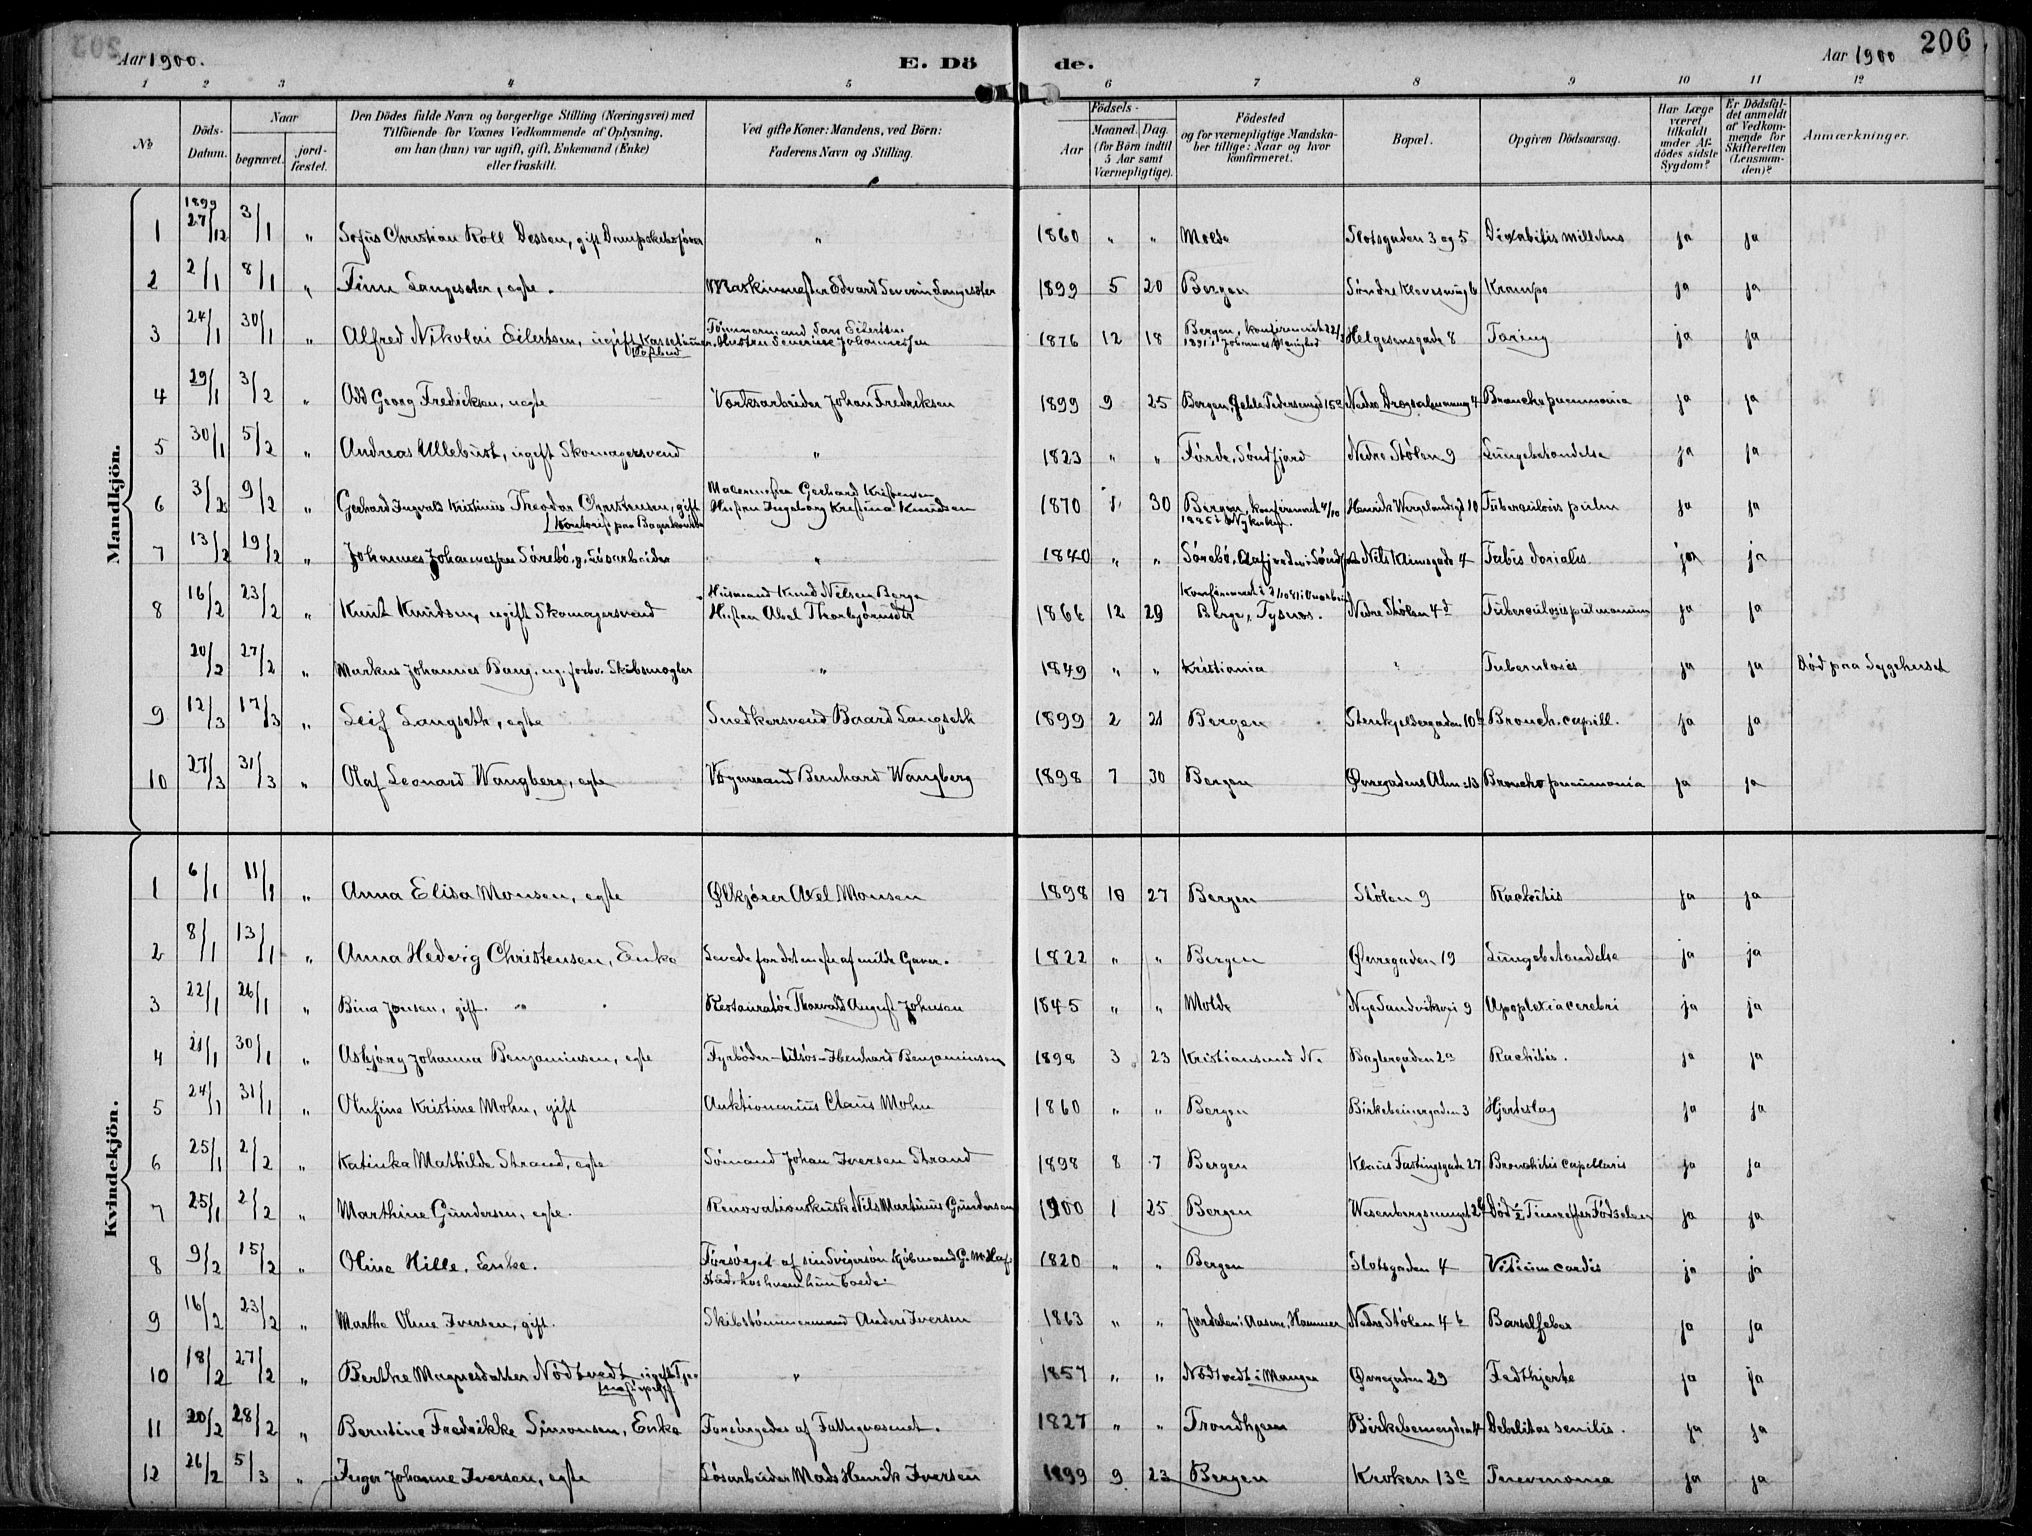 Aar 1900.
E. Döde.
Aar 1900
206
1 2 3 4 5 6 7 8 9 10 11 12
No
Döds-Datum.
Naar
begravet.
jord-fæstet.
Den Dödes fulde Navn og borgerlige Stilling (Næringsvei) med
Tilföiende for Voxnes Vedkommende af Oplysning,
om han (hun) var ugift, gift, Enkemand (Enke)
eller fraskilt.
Ved gifte Koner: Mandens, ved Börn:
Faderens Navn og Stilling.
Födsels-
Aar
Maaned. Dag.
(for Börn indtil
5 Aar samt
Værnepligtige).
Födested
og for værnepligtige Mandska-
ber tillige: Naar og hvor
konfirmeret.
Bopæl.
Opgiven Dödsaarsag.
Har Læge
været
tilkaldt
under Af-
dödes sidste
Sygdom?
Er Dödsfal-
det anmeldt
af Vedkom-
mende for
Skifteretten
(Lensman-
den)?
Anmærkninger.
Mandkjön.
1 1899 27/12 3/1 " Sofus Christian Roll Dessen, gift Dampskibsfører " 1860 " " Molde Slotsgaden 3 og 5 ja ja
2 2/1 8/1 " Finn Langesæter, egte. Maskinmester Edvard Severin Langesæter 1899 5 20 Bergen Søndre Kloverving 6 Krampe ja ja
3 24/1 30/1 " Alfred Nikolai Eilertsen, ugift Tømmermand Lars Eilertsen Hustru Severine Johannessen 1876 12 18 Bergen, konfirmeret Helgesensgade 8 Tæring ja ja
4 29/1 3/2 " Odd Georg Fredriksen, uegte Værksarbeider Johan Fredriksen 1899 9 25 Bergen, Nedre Dragesalmenning 4 Bronchopneumonia ja ja
5 30/1 5/2 " Andreas Ullebust, ugift Skomagersvend " 1823 " " Førde, Søndfjord Nedre Stølen 9 Lungebetændelse ja ja
6 3/2 9/2 " Gerhard Ingvald Kristinus Theodor Christensen, gift Kontorist paa Bagerkontor Malermester Gerhard Kristensen Hustru Ingeborg Kristina Knudsen 1870 1 30 Bergen, konfirmeret 4/10 1885 i Nykirken. Henrik Wergelandsgd 10 Tuberculosis pulm ja ja
7 13/2 19/2 " Johannes Johannessen Sørebø, g. Løsarbeider " 1840 " " Sørebø, Nils Klimsgade 4 Tabes dorsalis ja ja
8 16/2 23/2 " Knut Knutsen, ugift Skomagersvend Husmand Knud Nilsen Berge Hustru Abel Thorbjørnsdtr 1866 12 29 Berge, Tysnæs. Nedre Stølen 4d Tuberculosis pulmonum ja ja
20/2 27/2 " Markus Johannes Bang, ug. forhv. Skibsmægler " 1849 " " Kristiania " Tuberculosis ja ja Død paa Sygehuset
9 12/3 17/3 " Leif Langseth, egte Snedkersvend Baard Langseth 1899 2 21 Bergen Stenkjeldergaden 10b Bronch. capill. ja ja
10 27/3 31/3 " Olaf Leonard Wangberg, egte Vognmand Bernhard Wangberg 1898 7 30 Bergen Øvregadens Alm: 13 Bronchopneumonia ja ja
Kvindekjön.
1 6/1 11/1 " Anna Elisa Monsen, egte Ølkjører Axel Monsen 1898 10 27 Bergen Stølen 9 Rachitis ja ja
2 8/1 13/1 " Anna Hedvig Christensen, Enke Levede for det meste af milde Gaver. 1822 " " Bergen Øvregaden 19 Lungebetændelse ja ja
3 22/1 26/1 " Bina Jonsen, gift. Restauratør Thorvald August Johnsen 1845 " " Molde Nye Sandviksvei 9 Apoplexia cerebri ja ja
4 21/1 30/1 " Asbjørg Johanna Benjaminsen, egte Fyrbøder tilsøs Ebenhard Benjaminsen 1898 3 23 Kristiansund N. Baglergaden 2a Rachitis. ja ja
5 24/1 31/1 " Olufine Kristine Mohn, gift Auktionarius Claus Mohn 1860 " " Bergen Birkebeinergaden 3 Hjerteslag ja ja
6 25/1 2/2 " Katinka Mathilde Strand, egte Sømand Johan Iversen Strand 1898 8 7 Bergen Klaus Fastingsgade 27 Bronchitis capellaris ja ja
7 25/1 2/2 " Marthine Gundersen, egte. Renovationskusk Nils Martinus Gundersen 1900 1 25 Bergen Wesenbergsmuget Død ½ Time efter Fødselen ja ja
8 9/2 15/2 " Oline Hille, Enke. Forsørget af sin Svigersøn Kjøbmand G. M. Hafstad, hos hvem hun boede. 1820 " " Bergen Slotsgaden 4 Vitium cordis ja ja
9 16/2 23/2 " Marthe Oline Iversen, gift. Skibstømmermand Anders Iversen 1863 " " Jordalen i Aasene, Hammer Nedre Stølen 4b Barselfeber ja ja
10 18/2 27/2 " Berthe Magnesdatter Nødtvedt ugift " 1857 " " Nødtvedt i Manger Øvregaden 29 Fedthjerte ja ja
11 20/2 28/2 " Berntine Fredrikke Simonsen, Enke Forsørgedes af Fattigvæsenet. 1827 " " Trondhjem Birkebeinergaden 4 Debelitas senilis. ja ja
12 26/2 5/3 " Inger Johanne Iversen, egte Løsarbeider Mads Henrik Iversen 1899 9 23 Bergen Kroken 13c Pnevmonia ja ja